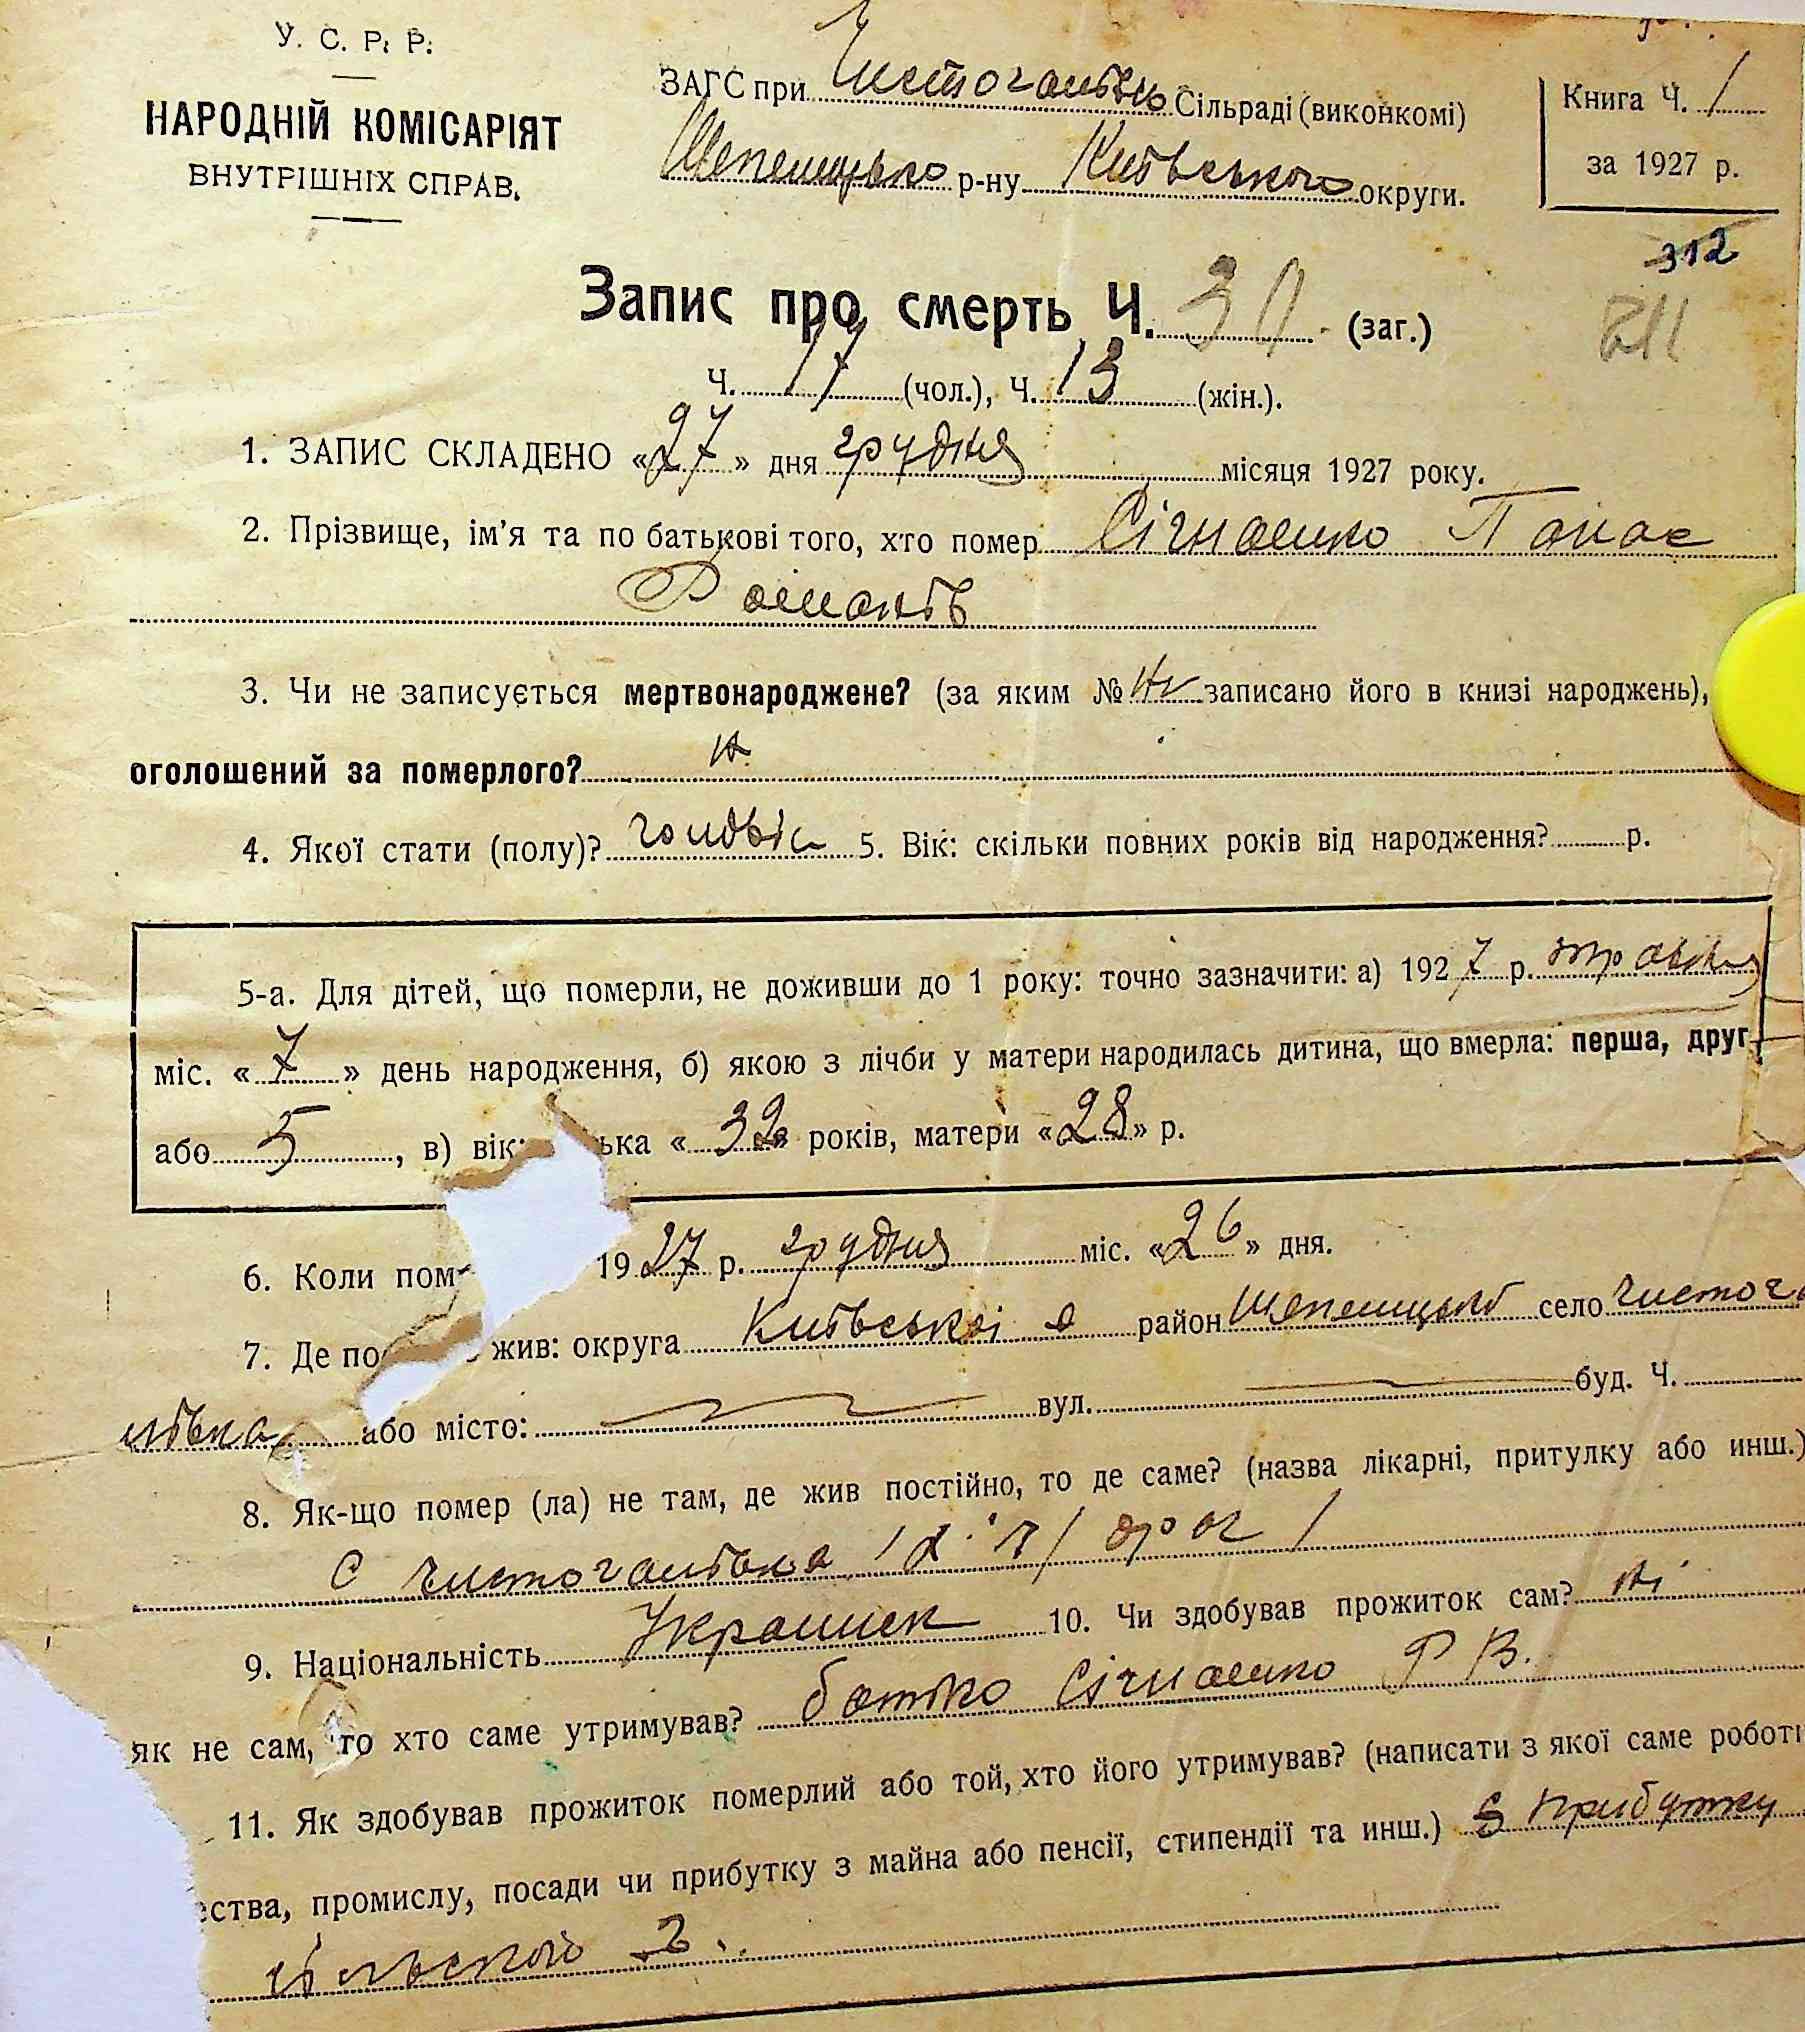 У. С. Р. Р.
НАРОДНІЙ КОМІСАРІЯТ
ВНУТРІШНІХ СПРАВ.
ЗАГС при Сільраді (виконкомі)
р-ну Київського округи.
Книга Ч. 1
за 1927 р.
312
Запис про смерть Ч. 30 (заг.)
Ч. 17 (чол.), Ч. 13 (жін.).
1. ЗАПИС СКЛАДЕНО «27» дня грудня місяця 1927 року.
2. Прізвище, ім'я та по батькові того, хто помер Панас
Романів
3. Чи не записується мертвонароджене? (за яким № записано його в книзі народжень),
оголошений за померлого?
4. Якої стати (полу)? 5. Вік: скільки повних років від народження? р.
5-а. Для дітей, що померли, не доживши до 1 року: точно зазначити: а) 1927 р. травня
міс. «7» день народження, б) якою з лічби у матери народилась дитина, що вмерла: перша, друг
або 5, в) вік: ька «32» років, матери «28» р.
6. Коли пом 1927 р. грудня міс. «26» дня.
7. Де по жив: округа Київської о район село Чистога
лівка або місто: вул. буд. Ч.
8. Як-що помер (ла) не там, де жив постійно, то де саме? (назва лікарні, притулку або инш.)
С Чистогалівка
9. Національність Українец 10. Чи здобував прожиток сам? ні
як не сам, то хто саме утримував? батько Р В.
11. Як здобував прожиток померлий або той, хто його утримував? (написати з якої саме роботи
ества, промислу, посади чи прибутку з майна або пенсії, стипендії та инш.) З прибутку